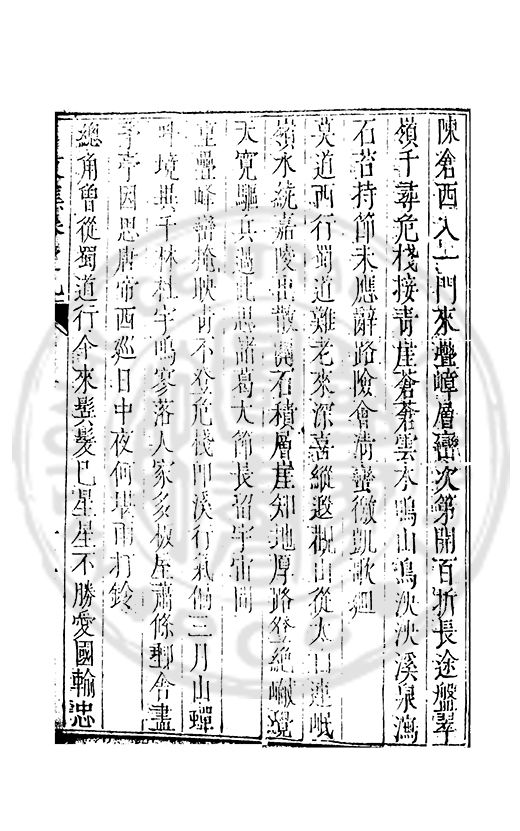 陳倉西入一門來疊嶂層巒次第開百折長途盤翠
嶺千尋危棧接青崖蒼蒼雲木鳴山鳥泱泱溪泉漏
石苔持節未應辭路險會清蠻徼凱歌廻
莫道西行蜀道難老來深喜縱遐觀山從太白連岷
嶺水統嘉陵出散關石積層崖知地厚路登絕巘覺
天寬驅兵過此思諸葛大節長留宇宙間
重疊峰巒掩映青不登危棧卽溪行氣偏三月山蟬
境異千林杜宇鳴寥落人家多板屋蕭條郵舍盡
亭因思唐帝西廵日中夜何堪雨打鈴
總角曾從蜀道行今來鬓髮已星星不勝愛國輸忠